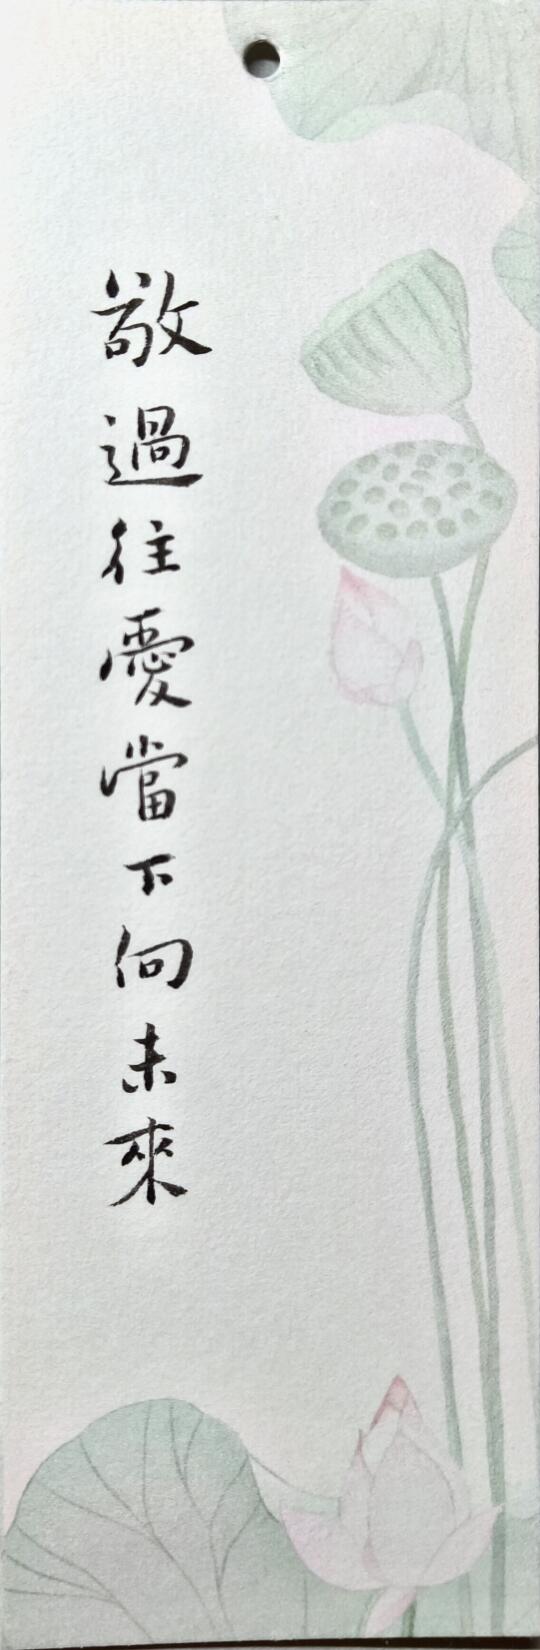 敬過往愛當下向未來